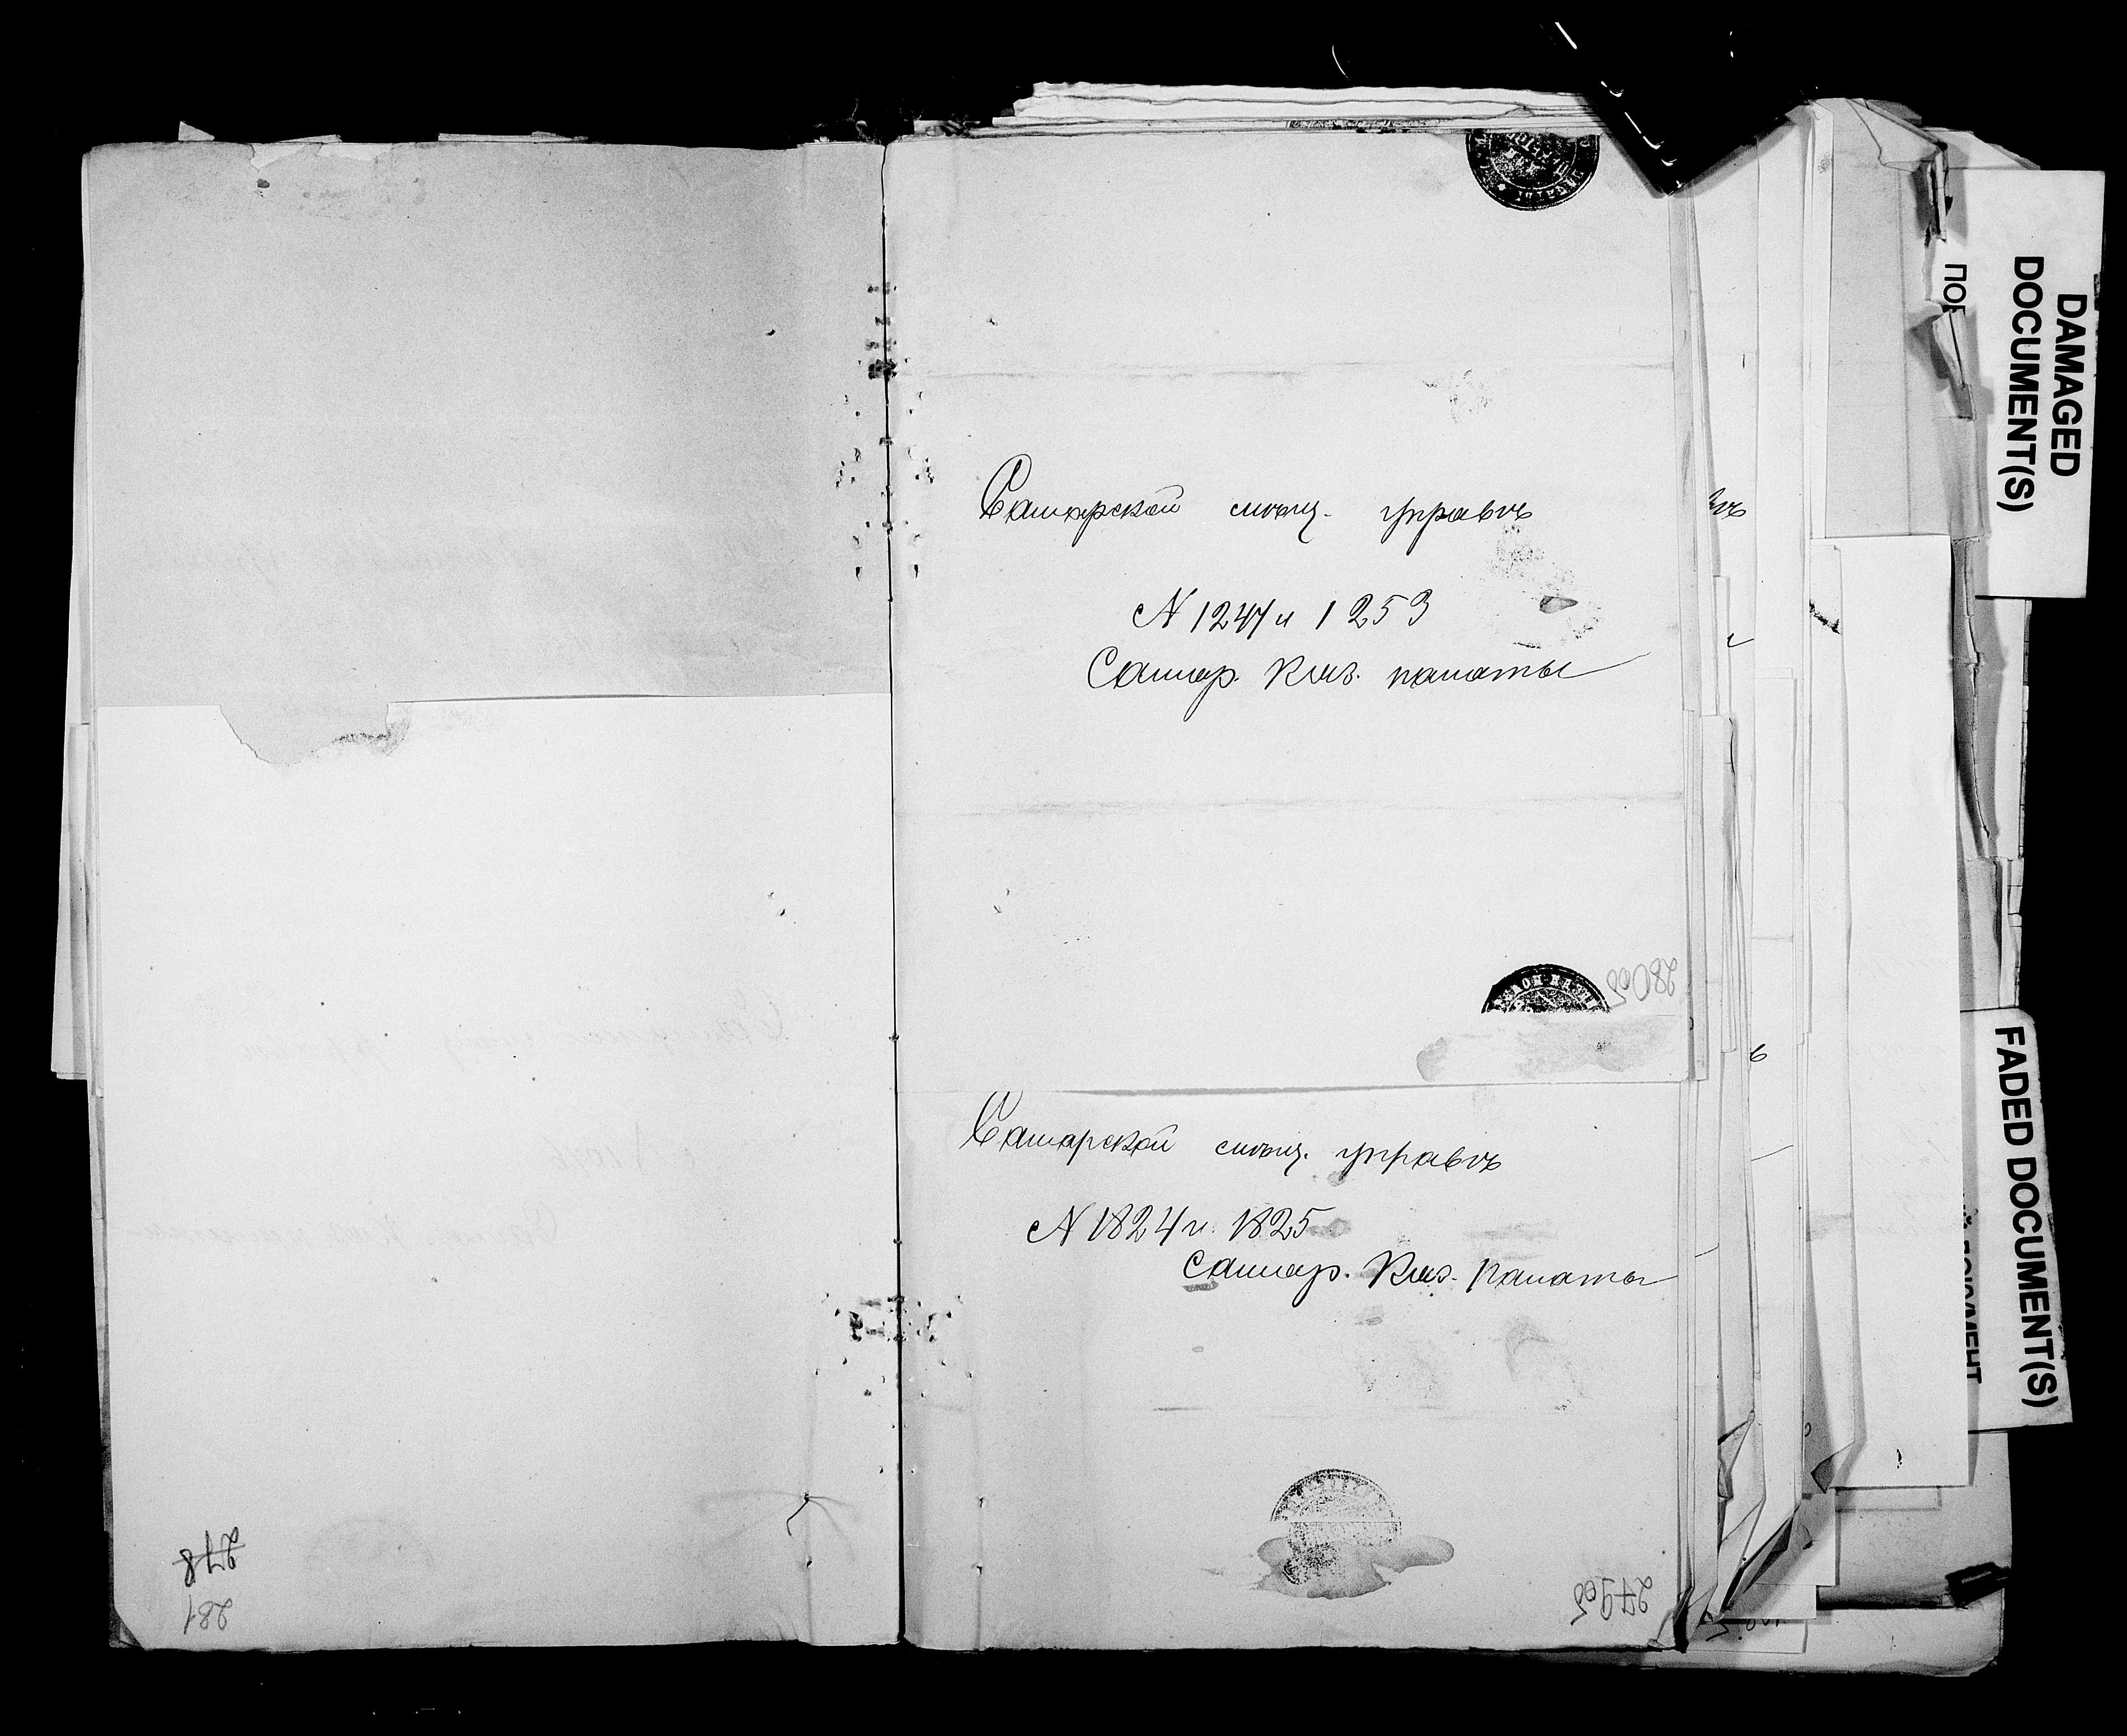 Самарской мѣщ. управѣ
N 1247 и 1253
Самар. Каз. палаты
280 об
Самарской мѣщ. управѣ
N 1824 и 1825
Самар. Каз. палаты
279 об
278
281
DAMAGED
DOCUMENT(S)
FADED DOCUMENT(S)